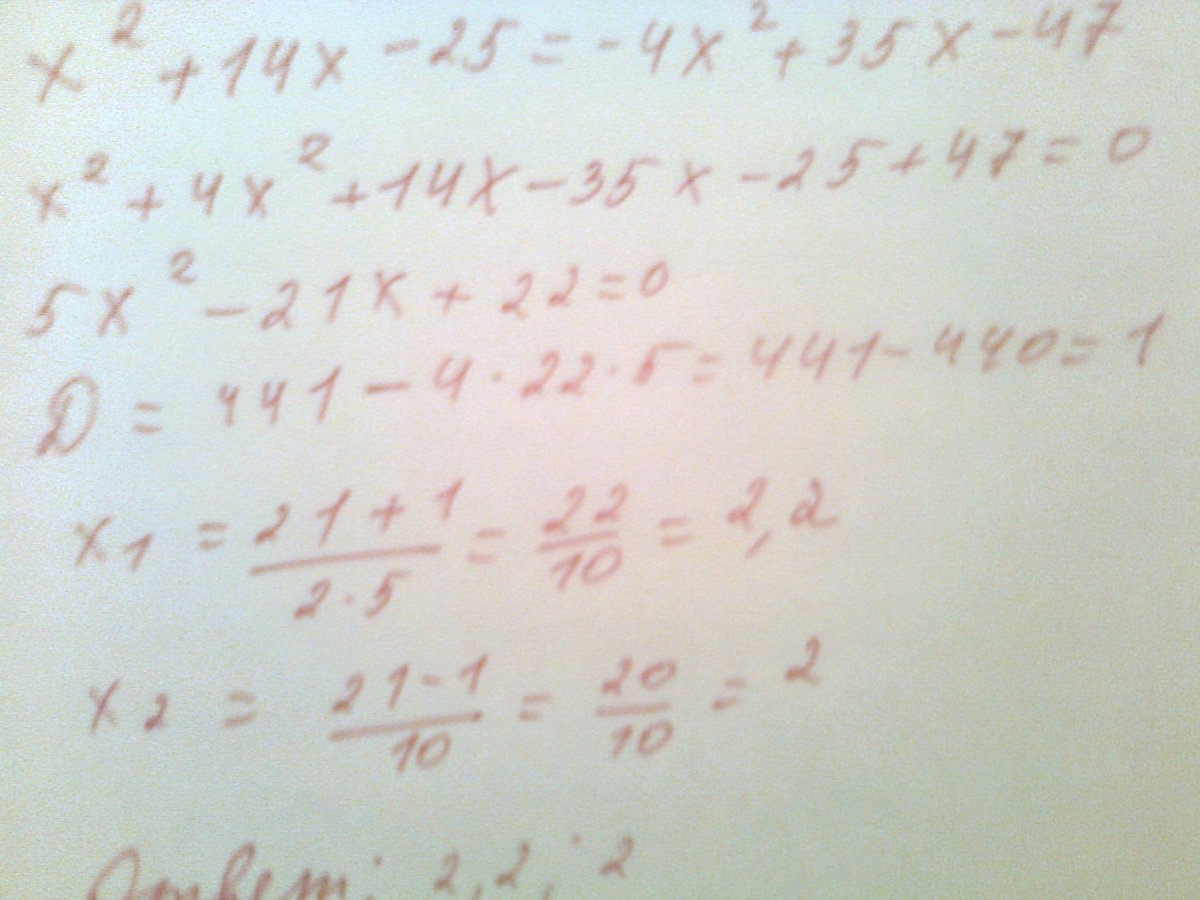 x² + 14x - 25 = -4x² + 35x - 47
x² + 4x² + 14x - 35x - 25 + 47 = 0
5x² - 21x + 22 = 0
D = 441 - 4 · 22 · 5 = 441 - 440 = 1
x₁ = (21 + 1)/(2 · 5) = 22/10 = 2,2
x₂ = (21 - 1)/10 = 20/10 = 2
Ответ: 2,2; 2